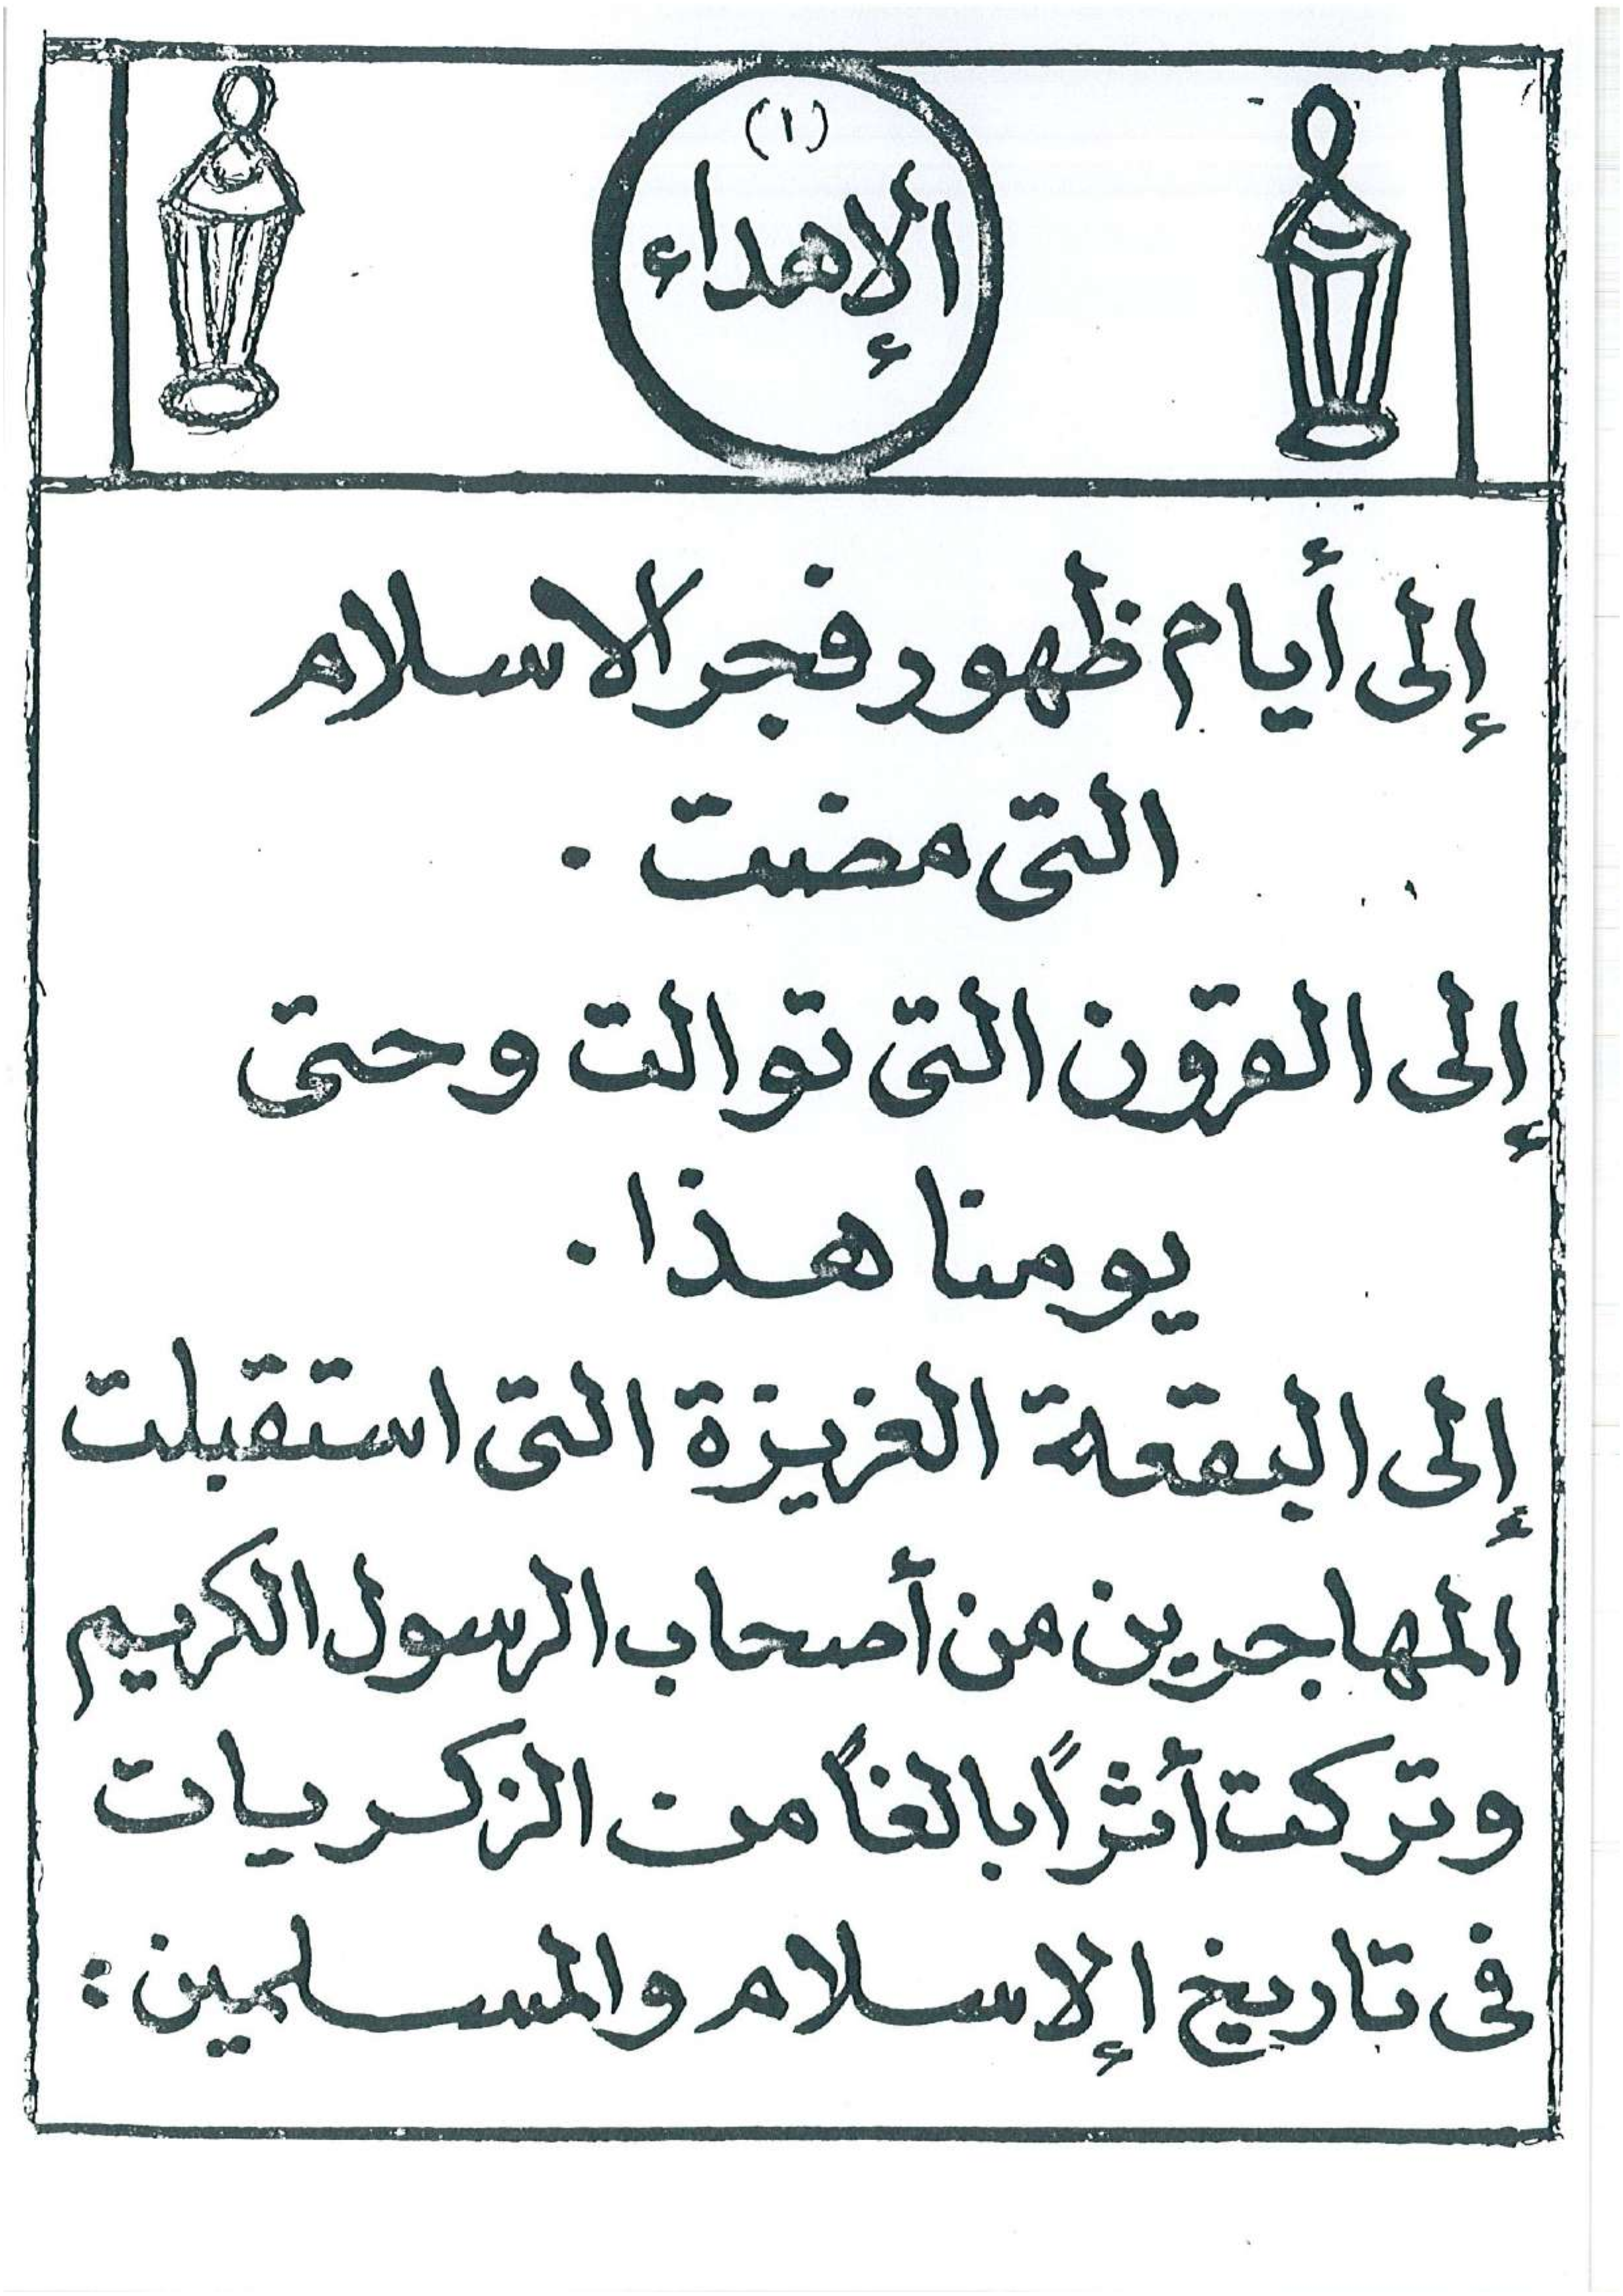 (١)
الإهداء
إلى أيام ظهور فجر الاسلام
التى مضت .
إلى القرون التى توالت وحتى
يومنا هذا .
إلى البقعة العزيزة التى استقبلت
المهاجرين من أصحاب الرسول الكريم
وتركت أثراً بالغاً من الزكريات
فى تاريخ الإسلام والمسلمين :